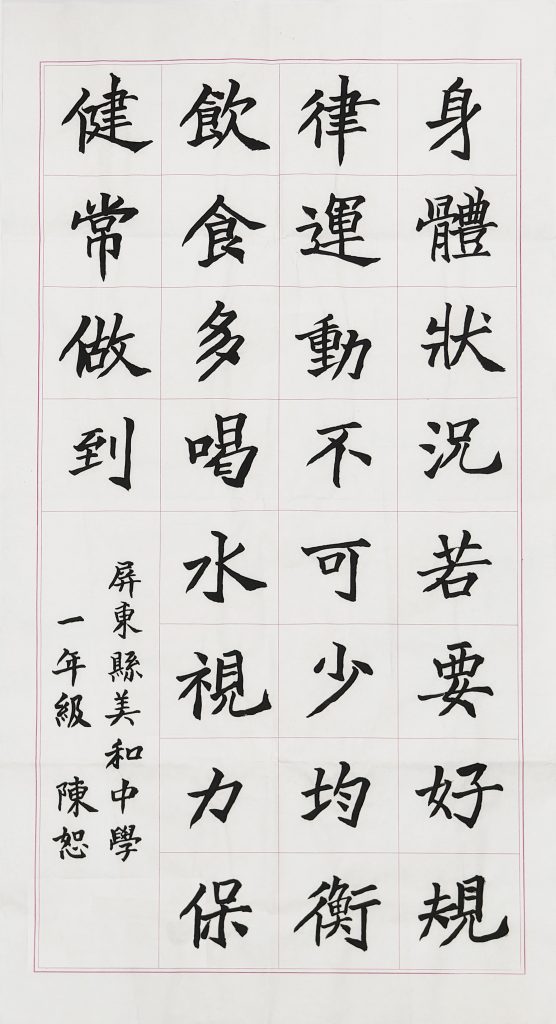 身體狀況若要好規
律運動不可少均衡
飲食多喝水視力保
健常做到
屏東縣美和中學
一年級 陳恕